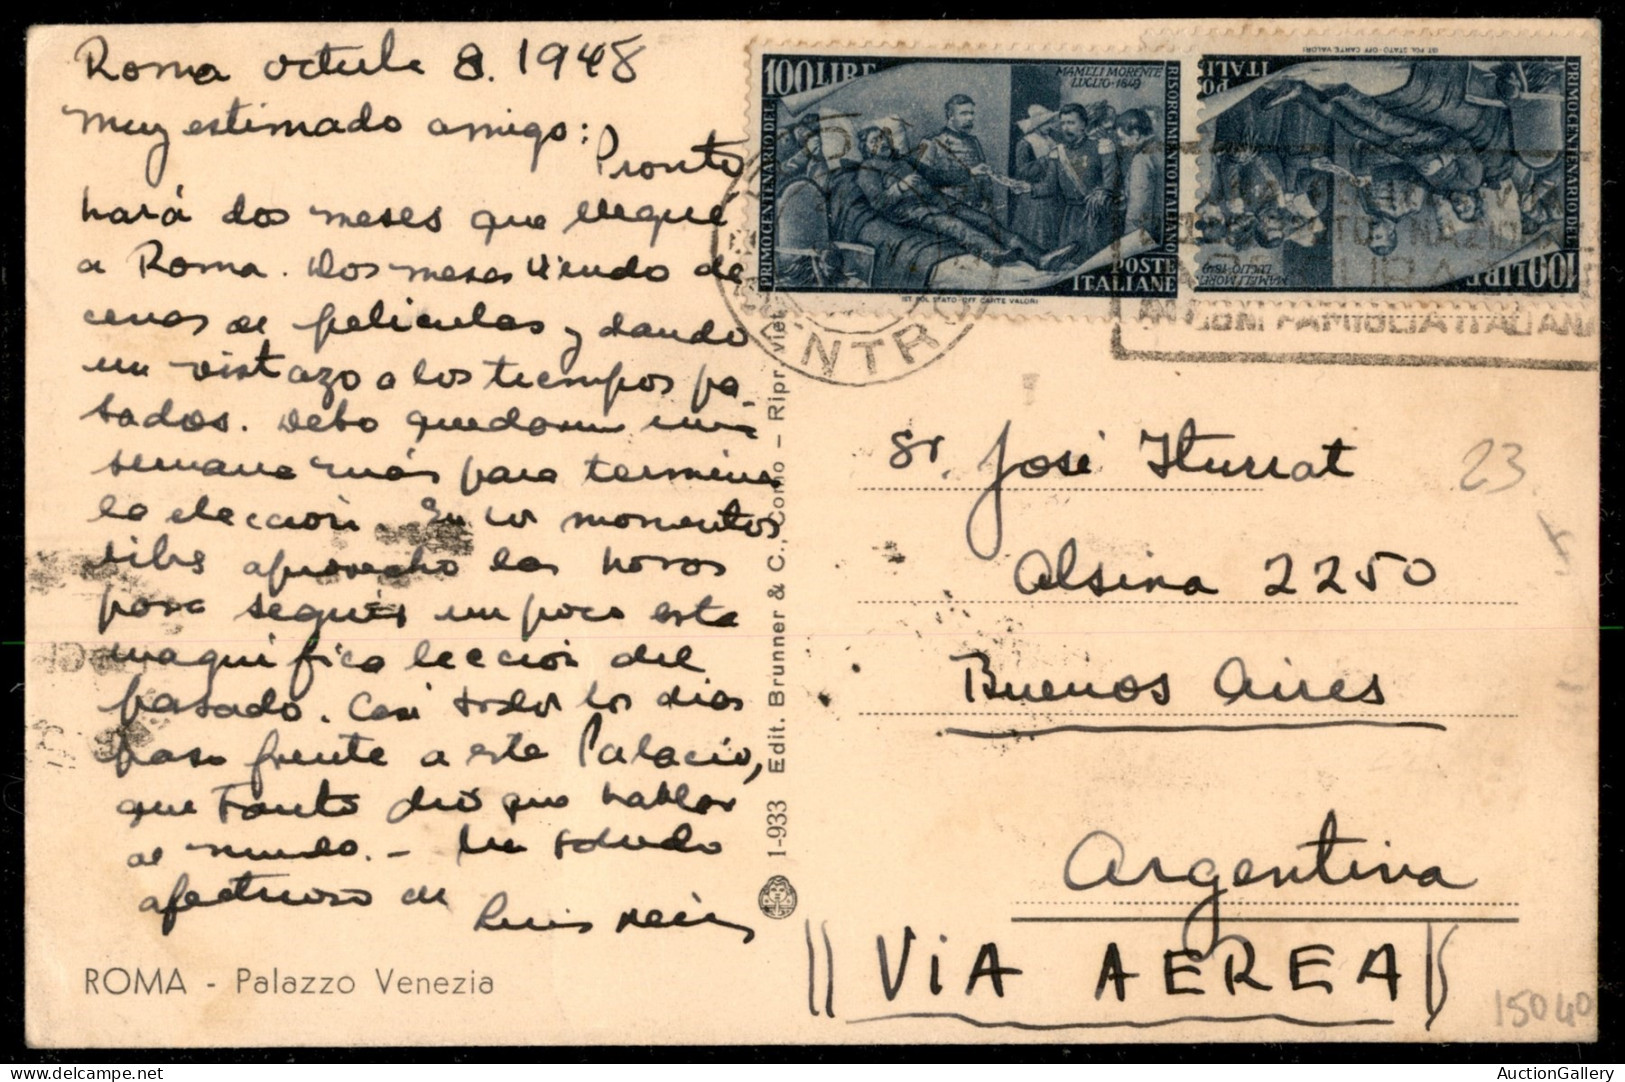 Roma octubre 8. 1948
Muy estimado amigo:
Pronto
hará dos meses que llegué
a Roma. Dos meses viendo de
cenas de peliculas y dando
un vistazo a los tiempos pa-
sados. Debo quedarme una
semana más para terminar
la elección. En los momentos
libres aprovecho las horas
para seguir un poco esta
magnifica leccion del
pasado. Casi todos los dias
paso frente a este Palacio,
que tanto dió que hablar
al mundo. - Un saludo
afectuoso de
Luis
ROMA - Palazzo Venezia
1-933 Edit. Brunner & C., Como - Ripr. Viet.
100 LIRE
MAMELI MORENTE
LUGLIO · 1849
PRIMO CENTENARIO DEL
RISORGIMENTO ITALIANO
POSTE
ITALIANE
IST. POL. STATO - OFF. CARTE VALORI
100 LIRE
PRIMO CENTENARIO DEL
IST. POL. STATO - OFF. CARTE VALORI
OGNI FAMIGLIA ITALIANA
Sr. José Iturrat
Alsina 2250
Buenos Aires
Argentina
VIA AEREA
23
15040
AuctionGallery